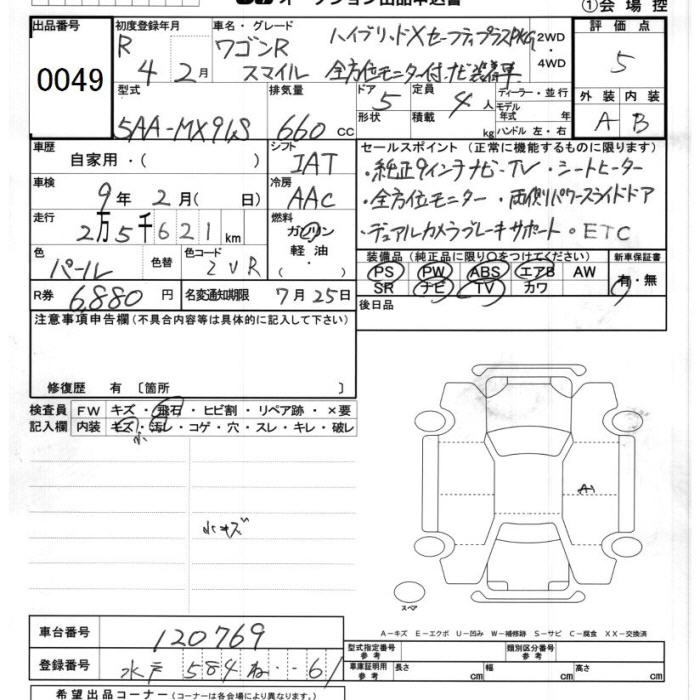 オークション出品申込書
①会場控
出品番号
0049
初度登録年月
R 4 2月
車名・グレード
ワゴンR ハイブリッドXセーフティプラスPKG
スマイル 全方位モニター付ナビ装着車
2WD
4WD
評価点
5
型式
5AA-MX91S
排気量
660 cc
ドア
5
形状
定員
4人
積載
kg
ディーラー・並行
モデル年式 年
ハンドル 左・右
外装 内装
A B
車歴
自家用・( )
シフト
IAT
セールスポイント (正常に機能するものに限ります)
・純正9インチナビ・TV ・シートヒーター
・全方位モニター ・両側パワースライドドア
・デュアルカメラブレーキサポート ・ETC
車検
9年 2月( 日)
冷房
AAC
走行
2万5千621km
燃料
ガソリン
軽油
・( )
色
パール
色替
色コード
ZVR
装備品 (純正品に限り○をつけてください)
PS PW ABS エアB AW
SR ナビ TV カワ
新車保証書
有・無
R券
6,880円
名変通知期限
7月25日
後日品
注意事項申告欄(不具合内容等は具体的に記入して下さい)
修復歴 有 〔箇所 〕
検査員
記入欄
FW キズ・飛石・ヒビ割・リペア跡・×要
内装 キズ・汚レ・コゲ・穴・スレ・キレ・破レ
小
小キズ
A1
スペア
A-キズ E-エクボ U-凹み W-補修跡 S-サビ C-腐食 XX-交換済
車台番号
120769
登録番号
水戸 584 ね ・・61
型式指定番号
参考
類別区分番号
参考
車庫証明用
参考
長さ cm
幅 cm
高さ cm
希望出品コーナー(コーナーは各会場により異なります。)